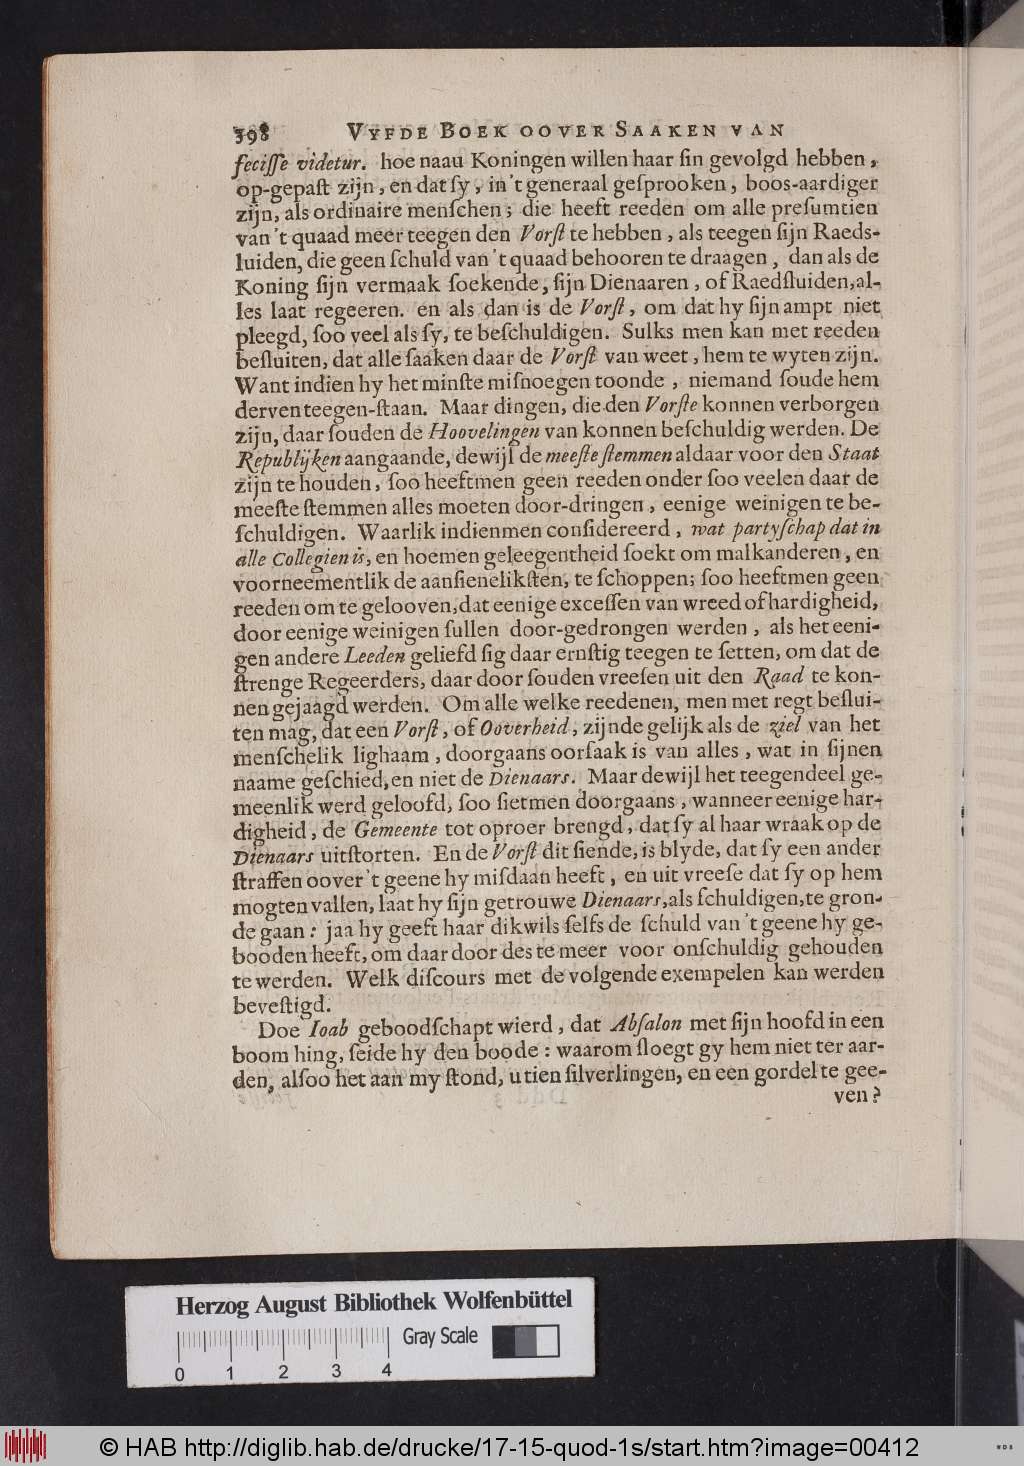 398 VYFDE BOEK OOVER SAAKEN VAN
feciſſe videtur. hoe naau Koningen willen haar ſin gevolgd hebben,
op-gepaſt zijn, en dat ſy, in 't generaal geſprooken, boos-aardiger
zijn, als ordinaire menſchen; die heeft reeden om alle preſumtien
van 't quaad meer teegen den Vorſt te hebben, als teegen ſijn Raeds-
luiden, die geen ſchuld van 't quaad behooren te draagen, dan als de
Koning ſijn vermaak ſoekende, ſijn Dienaaren, of Raedſluiden, al-
les laat regeeren. en als dan is de Vorſt, om dat hy ſijn ampt niet
pleegd, ſoo veel als ſy, te beſchuldigen. Sulks men kan met reeden
beſluiten, dat alle ſaaken daar de Vorſt van weet, hem te wyten zijn.
Want indien hy het minſte miſnoegen toonde, niemand ſoude hem
derven teegen-ſtaan. Maar dingen, die den Vorſte konnen verborgen
zijn, daar ſouden de Hoovelingen van konnen beſchuldig werden. De
Republijken aangaande, dewijl de meeſte ſtemmen aldaar voor den Staat
zijn te houden, ſoo heeftmen geen reeden onder ſoo veelen daar de
meeſte ſtemmen alles moeten door-dringen, eenige weinigen te be-
ſchuldigen. Waarlik indienmen conſidereerd, wat partyſchap dat in
alle Collegien is, en hoemen geleegentheid ſoekt om malkanderen, en
voorneementlik de aanſienelikſten, te ſchoppen; ſoo heeftmen geen
reeden om te gelooven, dat eenige exceſſen van wreed of hardigheid,
door eenige weinigen ſullen door-gedrongen werden, als het eeni-
gen andere Leeden geliefd ſig daar ernſtig teegen te ſetten, om dat de
ſtrenge Regeerders, daar door ſouden vreeſen uit den Raad te kon-
nen gejaagd werden. Om alle welke reedenen, men met regt beſlui-
ten mag, dat een Vorſt, of Ooverheid, zijnde gelijk als de ziel van het
menſchelik lighaam, doorgaans oorſaak is van alles, wat in ſijnen
naame geſchied, en niet de Dienaars. Maar dewijl het teegendeel ge-
meenlik werd geloofd, ſoo ſietmen doorgaans, wanneer eenige har-
digheid, de Gemeente tot oproer brengd, dat ſy al haar wraak op de
Dienaars uitſtorten. En de Vorſt dit ſiende, is blyde, dat ſy een ander
ſtraffen oover 't geene hy miſdaan heeft, en uit vreeſe dat ſy op hem
mogten vallen, laat hy ſijn getrouwe Dienaars, als ſchuldigen, te gron-
de gaan: jaa hy geeft haar dikwils ſelfs de ſchuld van 't geene hy ge-
booden heeft, om daar door des te meer voor onſchuldig gehouden
te werden. Welk diſcours met de volgende exempelen kan werden
beveſtigd.
Doe Ioab geboodſchapt wierd, dat Abſalon met ſijn hoofd in een
boom hing, ſeide hy den boode: waarom ſloegt gy hem niet ter aar-
den, alſoo het aan my ſtond, u tien ſilverlingen, en een gordel te gee-
ven?
Herzog August Bibliothek Wolfenbüttel
Gray Scale
0 1 2 3 4
© HAB http://diglib.hab.de/drucke/17-15-quod-1s/start.htm?image=00412